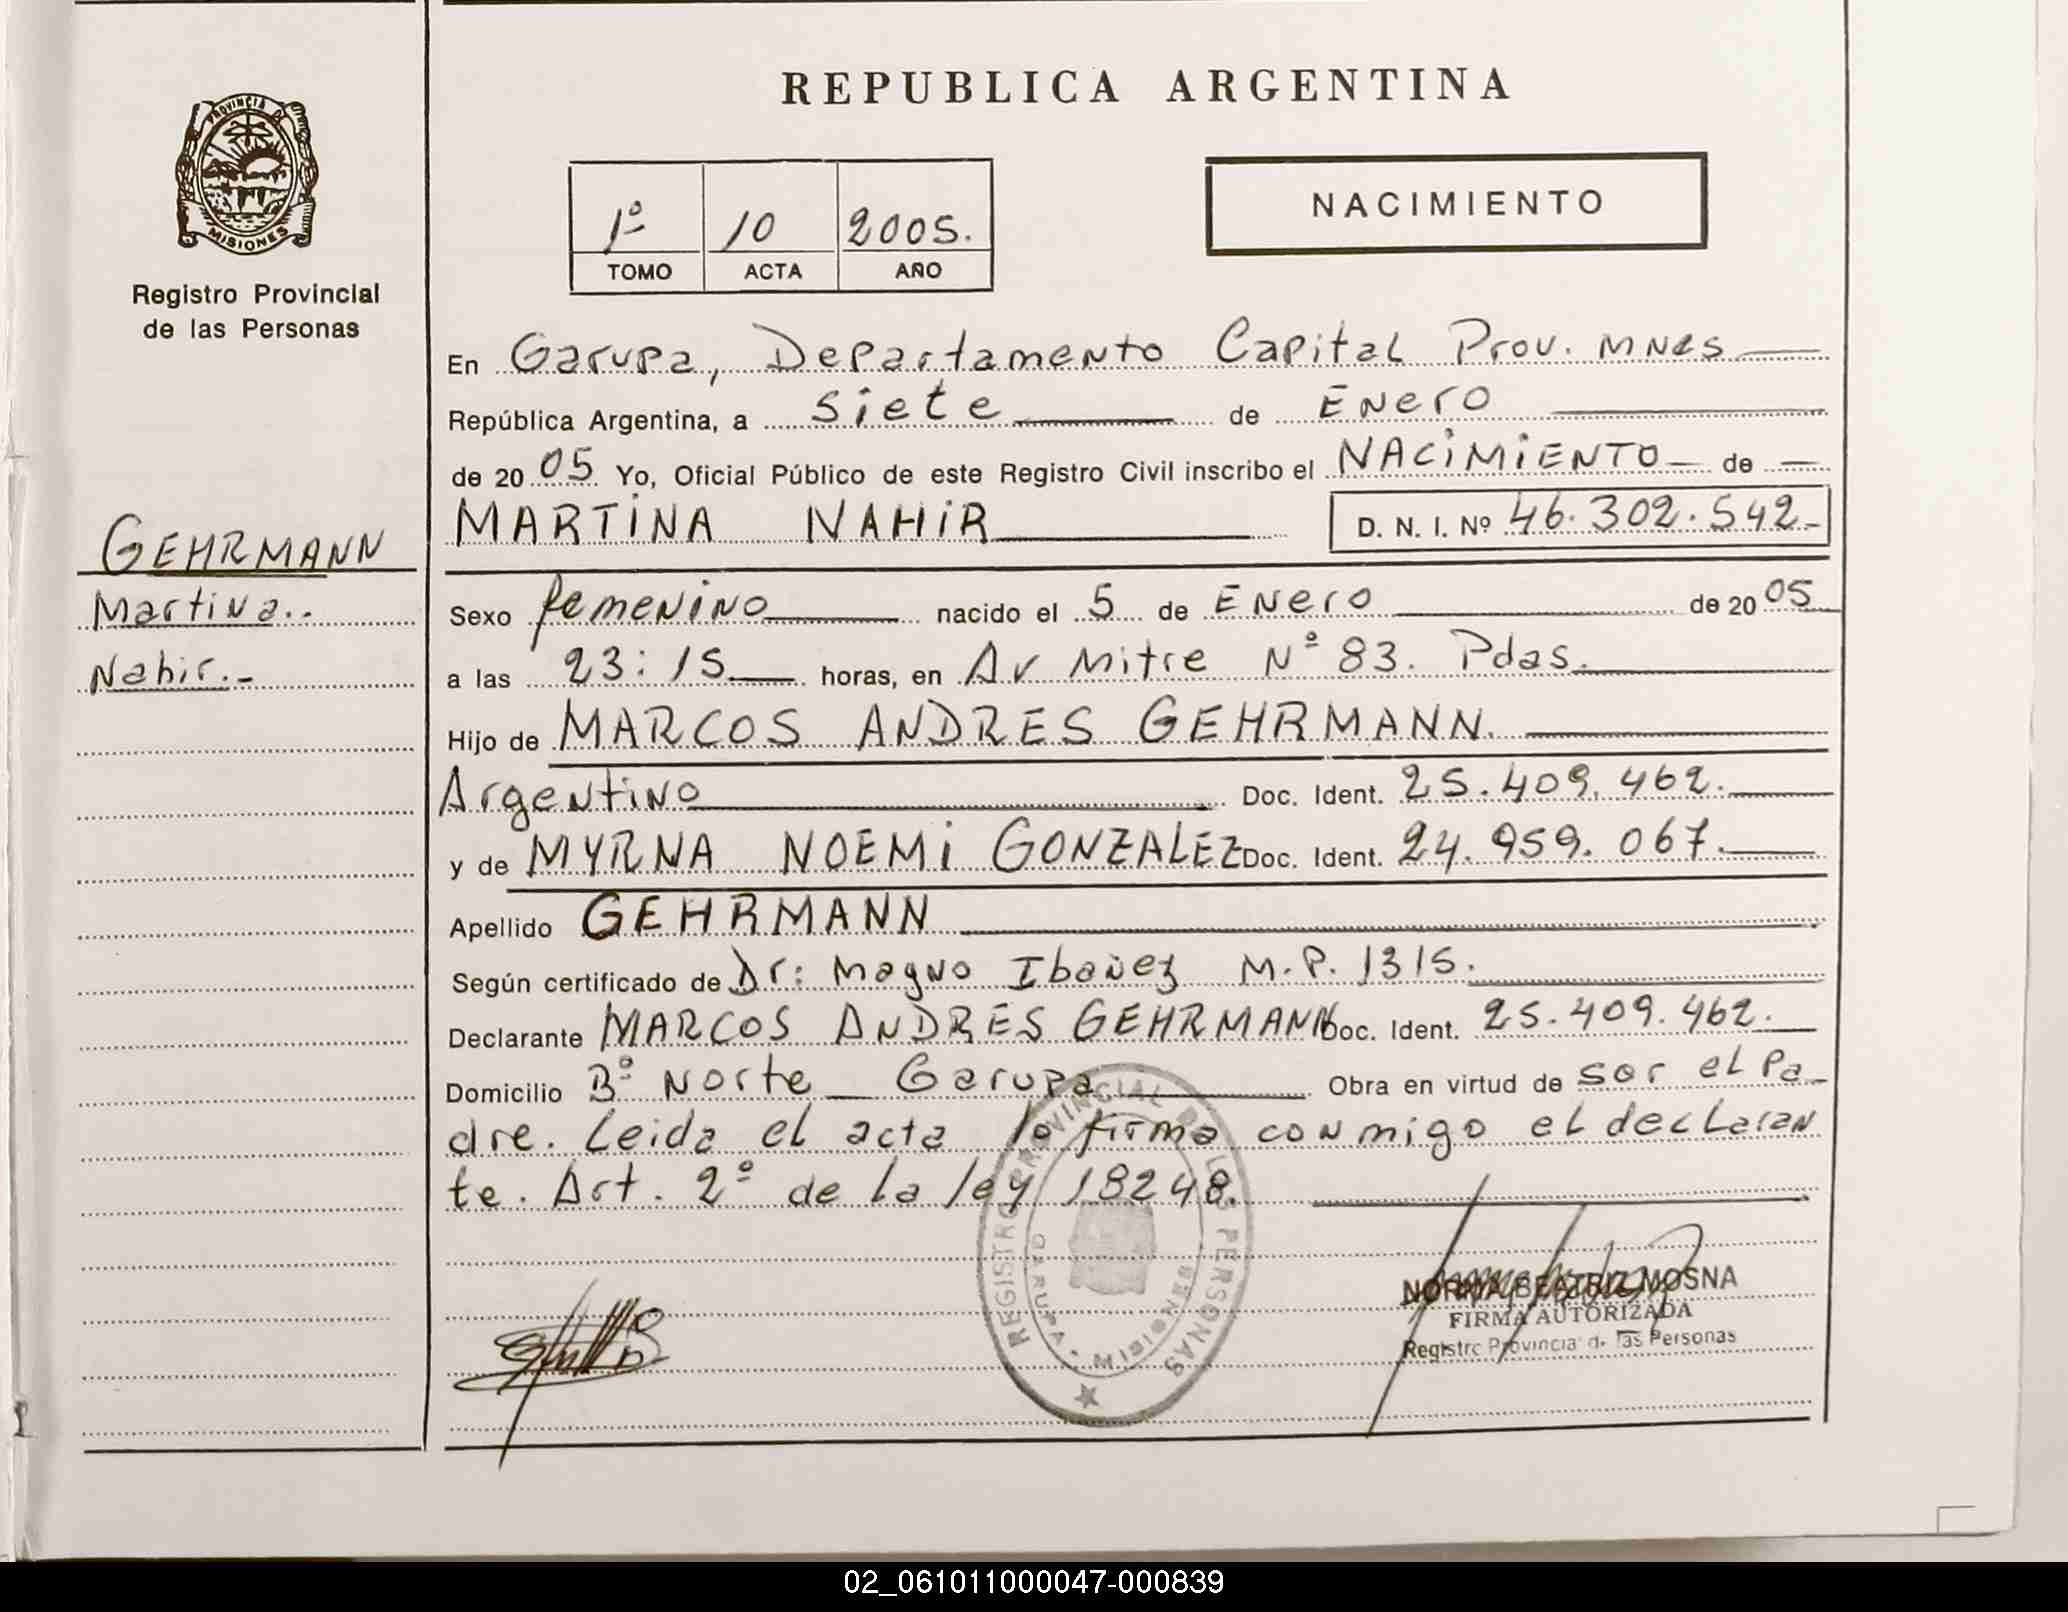 REPUBLICA ARGENTINA
PROVINCIA DE
MISIONES
Registro Provincial
de las Personas
1º 10 2005.
TOMO ACTA AÑO
NACIMIENTO
En Garupa, Departamento Capital Prov. Mnes
República Argentina, a siete de Enero
de 2005 Yo, Oficial Público de este Registro Civil inscribo el NACIMIENTO de
MARTINA NAHIR D. N. I. Nº 46.302.542-
GEHRMANN
Martina..
Nahir.-
Sexo femenino nacido el 5 de Enero de 2005
a las 23:15 horas, en Av Mitre Nº 83. Pdas.
Hijo de MARCOS ANDRES GEHRMANN.
Argentino Doc. Ident. 25.409.462.
y de MYRNA NOEMI GONZALEZ Doc. Ident. 24.959.067.
Apellido GEHRMANN
Según certificado de Dr: Magno Ibañez M.P. 1315.
Declarante MARCOS ANDRES GEHRMANN Doc. Ident. 25.409.462.
Domicilio Bº Norte Garupa Obra en virtud de ser el Pa-
dre. Leida el acta la firma conmigo el declaran
te. Art. 2º de la ley 18248.
REGISTRO PROVINCIAL DE LAS PERSONAS
GARUPA - Misiones
NORMA BEATRIZ MOSNA
FIRMA AUTORIZADA
Registro Provincial de las Personas
02_061011000047-000839